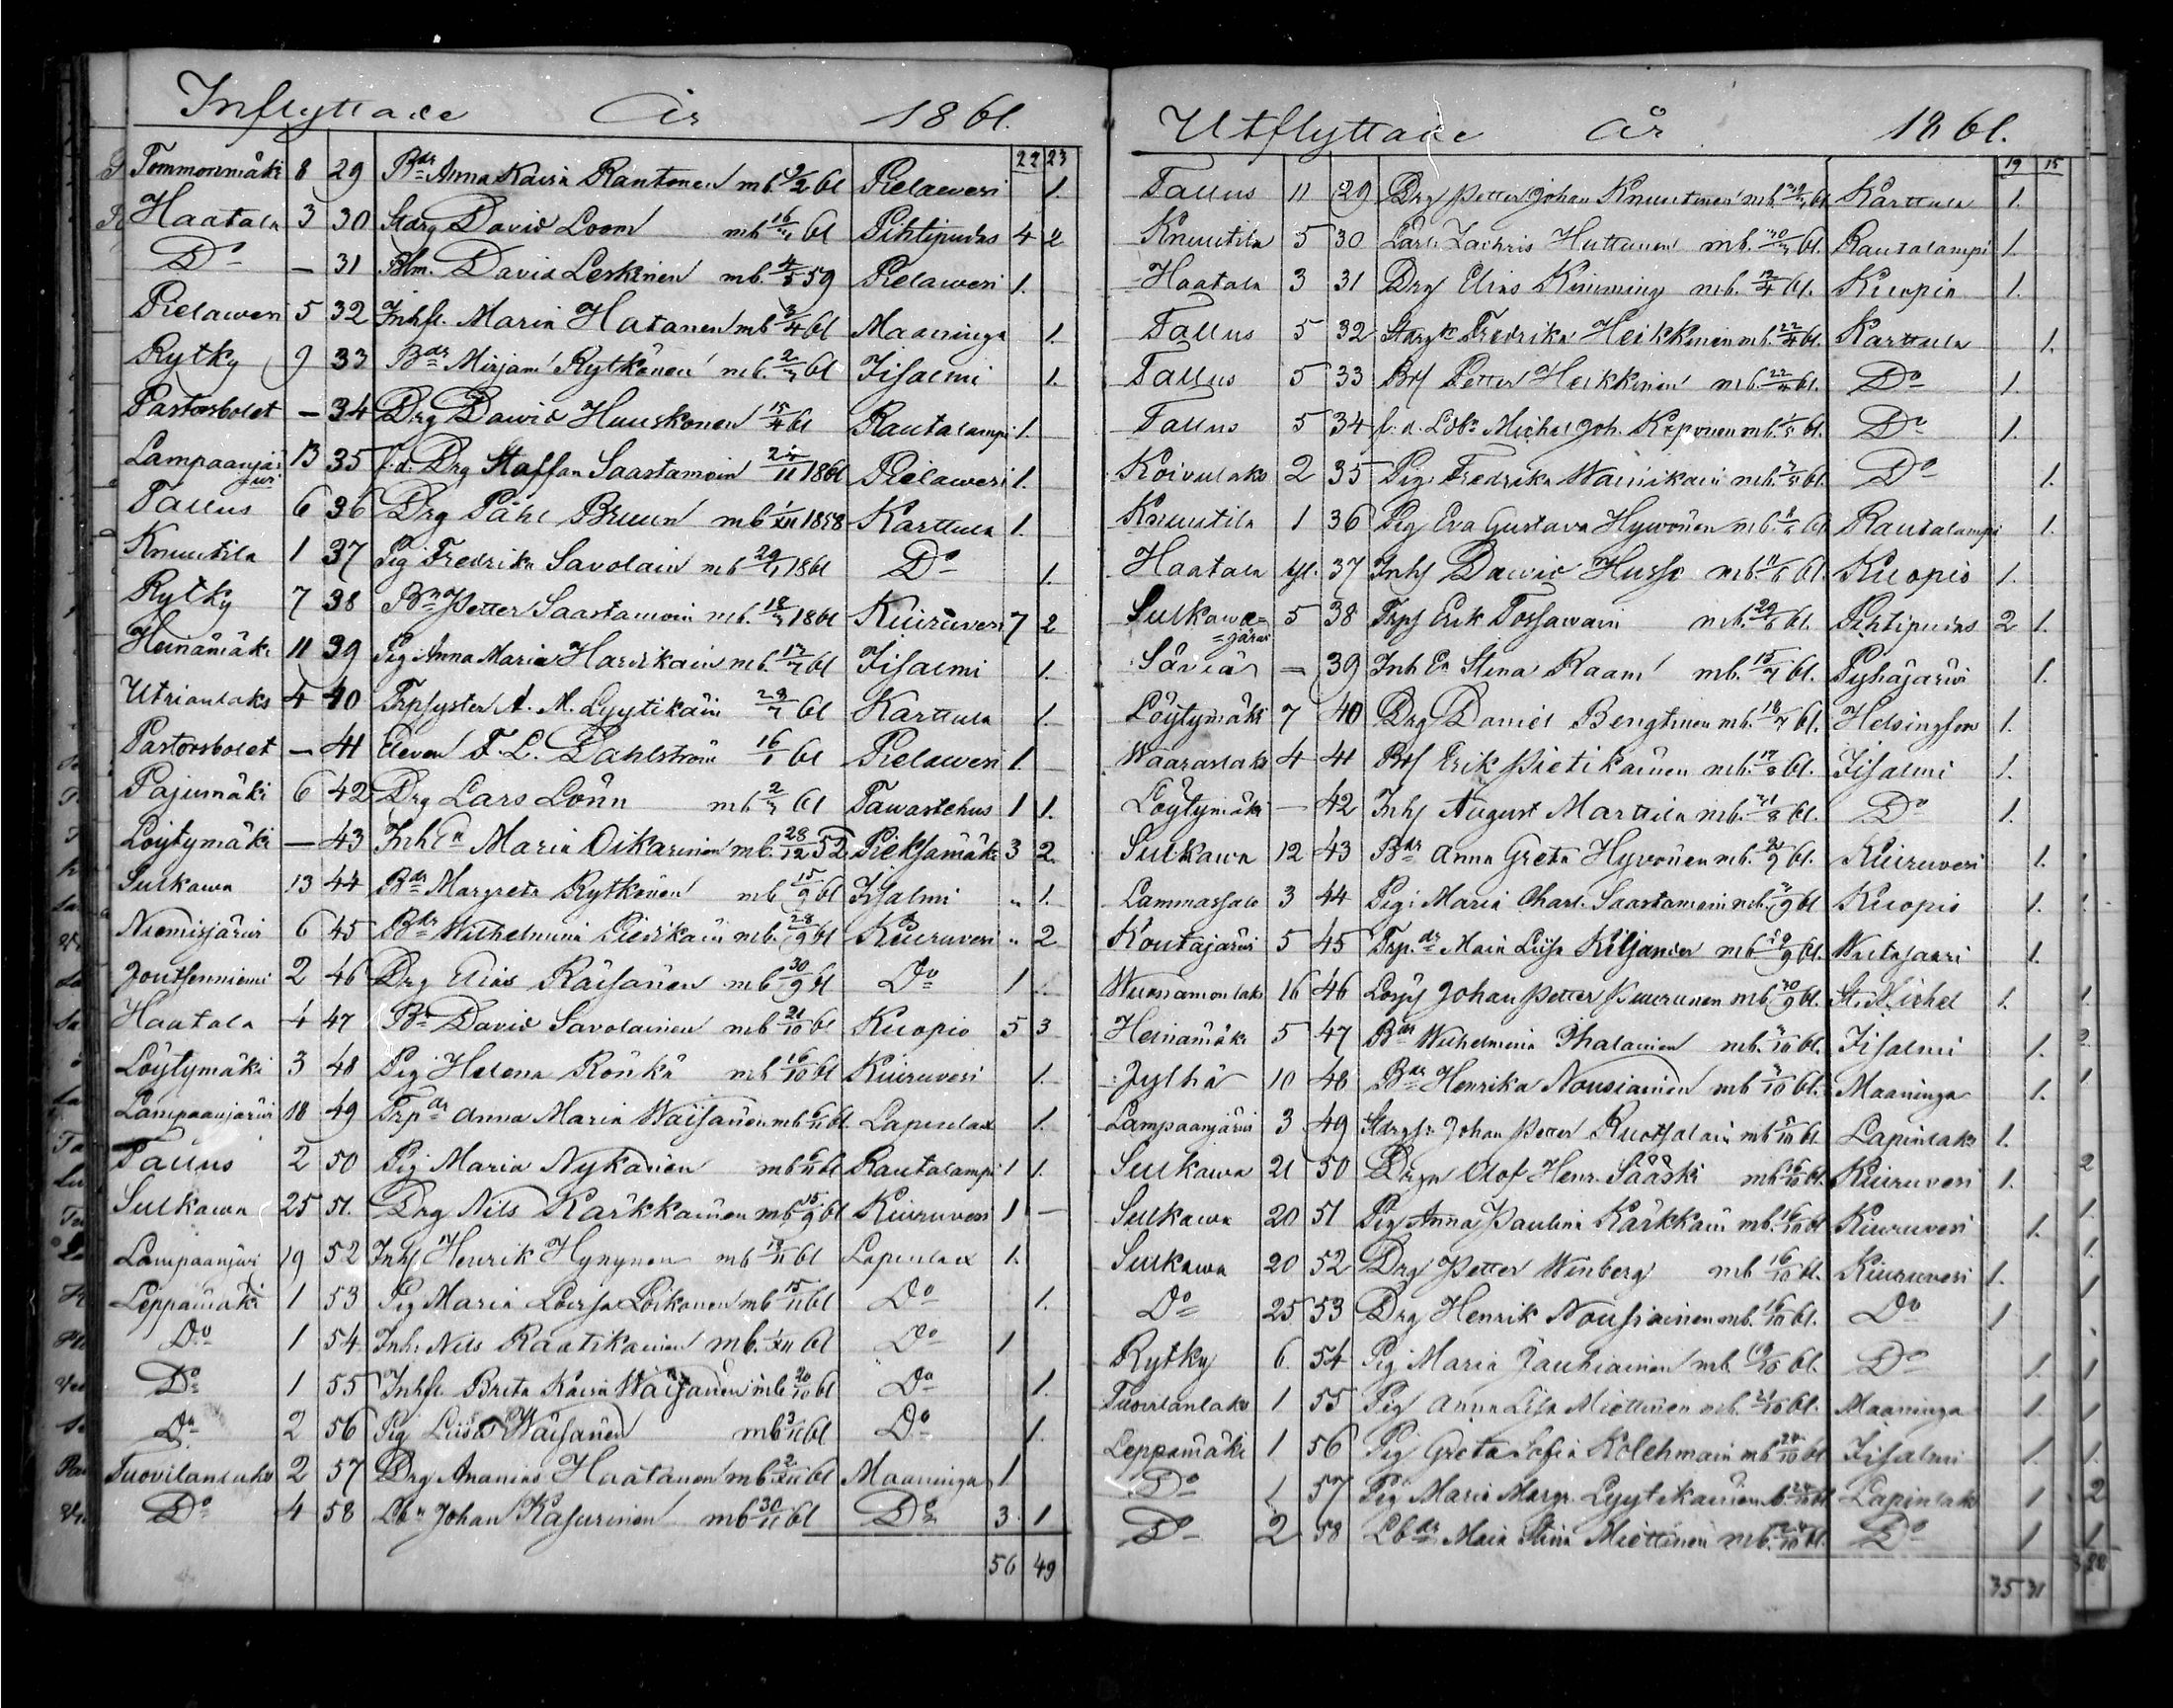 Inflyttade År 1861.
22 23
Tommonmäki 8 29 Bdr Anna Kaisa Rantonen mb 9/2 61 Pielawesi 1.
Haatala 3 30 Skdrg David Loom mb 16/4 61 Pihtipudas 4 2
Do — 31 Blm. David Leskinen mb. 4/5 59 Pielawesi 1.
Pielawesi 5 32 Inhfl. Maria Hatanen mb 3/4 61 Maaninga 1.
Rytky 9 33 Bdr Mirjam Rytkönen mb. 2/5 61 Jisalmi 1.
Pastorsbolet — 34 Drg Dawid Huuskonen 15/4 61 Rautalampi 1.
Lampaanjärwi 13 35 f.d. Drg Staffan Saastamoin 1861 Pielawesi 1.
Tallus 6 36 Drg Påhl Bruun mb 1/XII 1858 Karttula 1.
Knuutila 1 37 Pig Fredrika Savolain mb 1861 Do 1.
Rytky 7 38 Bn Petter Saastamoin mb. 18/5 1861 Kiuruvesi 7 2
Heinämäki 11 39 Pig Anna Maria Hardikain mb. 17/7 61 Jisalmi 1.
Utrianlaks 4 40 Trpsyster A. M. Lyytikäin 61 Karttula 1.
Pastorsbolet — 41 Eleven F. L. Dahlström 16/1 61 Pielawesi 1.
Pajumäki 6 42 Drg Lars Lönn mb 61 Tawastehus 1 1.
Löytymäki — 43 InhEn Maria Oikarinen mb. 28/12 52 Pieksämäki 3 2.
Sulkawa 13 44 Bdr Margreta Rytkönen mb 15/9 61 Jisalmi „ 1.
Niemisjärwi 6 45 Bdr Wilhelmina Pietikäin mb. 28/9 61 Kiuruvesi „ 2
Joutsenniemi 2 46 Drg Elias Räisänen mb 30/9 61 Do 1
Haatala 4 47 Bn David Savolainen mb 21/10 61 Kuopio 5 3
Löytymäki 3 48 Pig Helena Rönkä mb 16/10 61 Kiuruvesi 1.
Lampaanjärwi 18 49 Trpdr Anna Maria Waisänen mb 6/11 61. Lapinlax 1.
Tallus 2 50 Pig Maria Nykänen mb 6/11 61 Rautalampi 1 1.
Sulkawa 25 51. Drg Nils Kärkkäinen mb 15/9 61 Kiuruvesi 1 —
Lampaanjärwi 19 52 Inhs Henrik Hynynen mb 61 Lapinlax 1.
Leppämäki 1 53 Pig Maria Lovisa Loikonen mb 15/11 61 Do 1.
Do 1 54 Inhs Nils Raatikainen mb. 1/XII 61 Do 1
Do 1 55 Inhfl. Brita Kaisa Wäisänen mb 20/10 61 Do 1.
Do 2 56 Pig Liisa Wäisänen mb 3/11 61 Do 1.
Tuovilanlaks 2 57 Drg Ananias Haatanen mb 2/XII 61 Maaninga 1
Do 4 58 Lbn Johan Kasurinen mb 30/11 61 Do 3 1
56 49
Utflyttade År 1861.
19 15
Tallus 11 29 Drg Petter Johan Knuutinen mb. 61 Karttula 1.
Knuutila 5 30 Lärl. Zachris Huttunen mb. 61. Rautalampi 1.
Haatala 3 31 Drg Elias Kimming mb. 12/4 61. Kuopio 1.
Tallus 5 32 Fredrika Heikkinen mb. 22/4 61. Karttula 1.
Tallus 5 33 Brs Petter Heikkinen mb. 22/4 61. Do 1.
Tallus 5 34 f.d. Ldbn Michel Joh. Kopponen mb. 61. Do 1.
Koivulaks 2 35 Pig Fredrika Wainikain mb. 61. Do 1.
Knuutila 1 36 Pig Eva Gustava Hywönen mb. 61 Rautalampi 1.
Haatala 37 Inhs Dawid Husso mb. 61. Kuopio 1.
Sulkawa= =järwi 5 38 Trps Erik Tossawain mb. 29/6 61. Pihtipudas 2 1.
Säviä — 39 Inh En Stina Raam mb. 15/7 61. Pyhäjärwi 1.
Löytymäki 7 40 Drg Daniel Bengtman mb. 18/7 61. Helsingfors 1.
Waaraslaks 4 41 Brs Erik Pietikäinen mb. 17/8 61. Jisalmi 1.
Löytymäki — 42 Inhs August Marttila mb. 61. Do 1.
Sulkawa 12 43 Bdr Anna Greta Hyvönen mb. 61. Kiuruvesi 1.
Lammassalo 3 44 Pig: Maria Charl. Saastamoin mb. 61 Kuopio 1.
Koutajärwi 5 45 Trp.dr Maria Lisa Kiljander mb 61. Wiitasaari 1.
16 46 Johan Petter Kuurunen mb 30/9 61. St. Michel 1.
Heinämäki 5 47 Bdr Wilhelmina Ihalainen mb. 61. Jisalmi 1.
Jylhä 10 48 Bdr Henrika Nousiainen mb 61. Maaninga 1.
Lampaanjärwi 3 49 Johan Petter Ruotsalain mb 61. Lapinlaks 1.
Sulkawa 21 50 Drgn Olof Henr. Sääski mb 16/10 61. Kiuruvesi 1.
Sulkawa 20 51 Pig Anna Paulina Kärkkäin mb. 16/10 61 Kiuruvesi 1.
Sulkawa 20 52 Drg Petter Winberg mb 16/10 61. Kiuruvesi 1.
Do 25 53 Drg Henrik Nousiainen mb. 16/10 61. Do 1
Rytky 6. 54 Pig Maria Jauhiainen mb. 19/10 61. Do 1.
Tuovilanlaks 1 55 Pig Anna Lisa Miettinen mb. 61. Maaninga 1.
Leppämäki 1 56 Pig Greta Sofia Kolehmain mb 61 Jisalmi 1.
Do 1 57 Pig Maria Margr. Lyytikäinen Lapinlaks 1
Do 2 58 Lbdr Maia Stina Miettinen mb. 61. Do 1
35 31